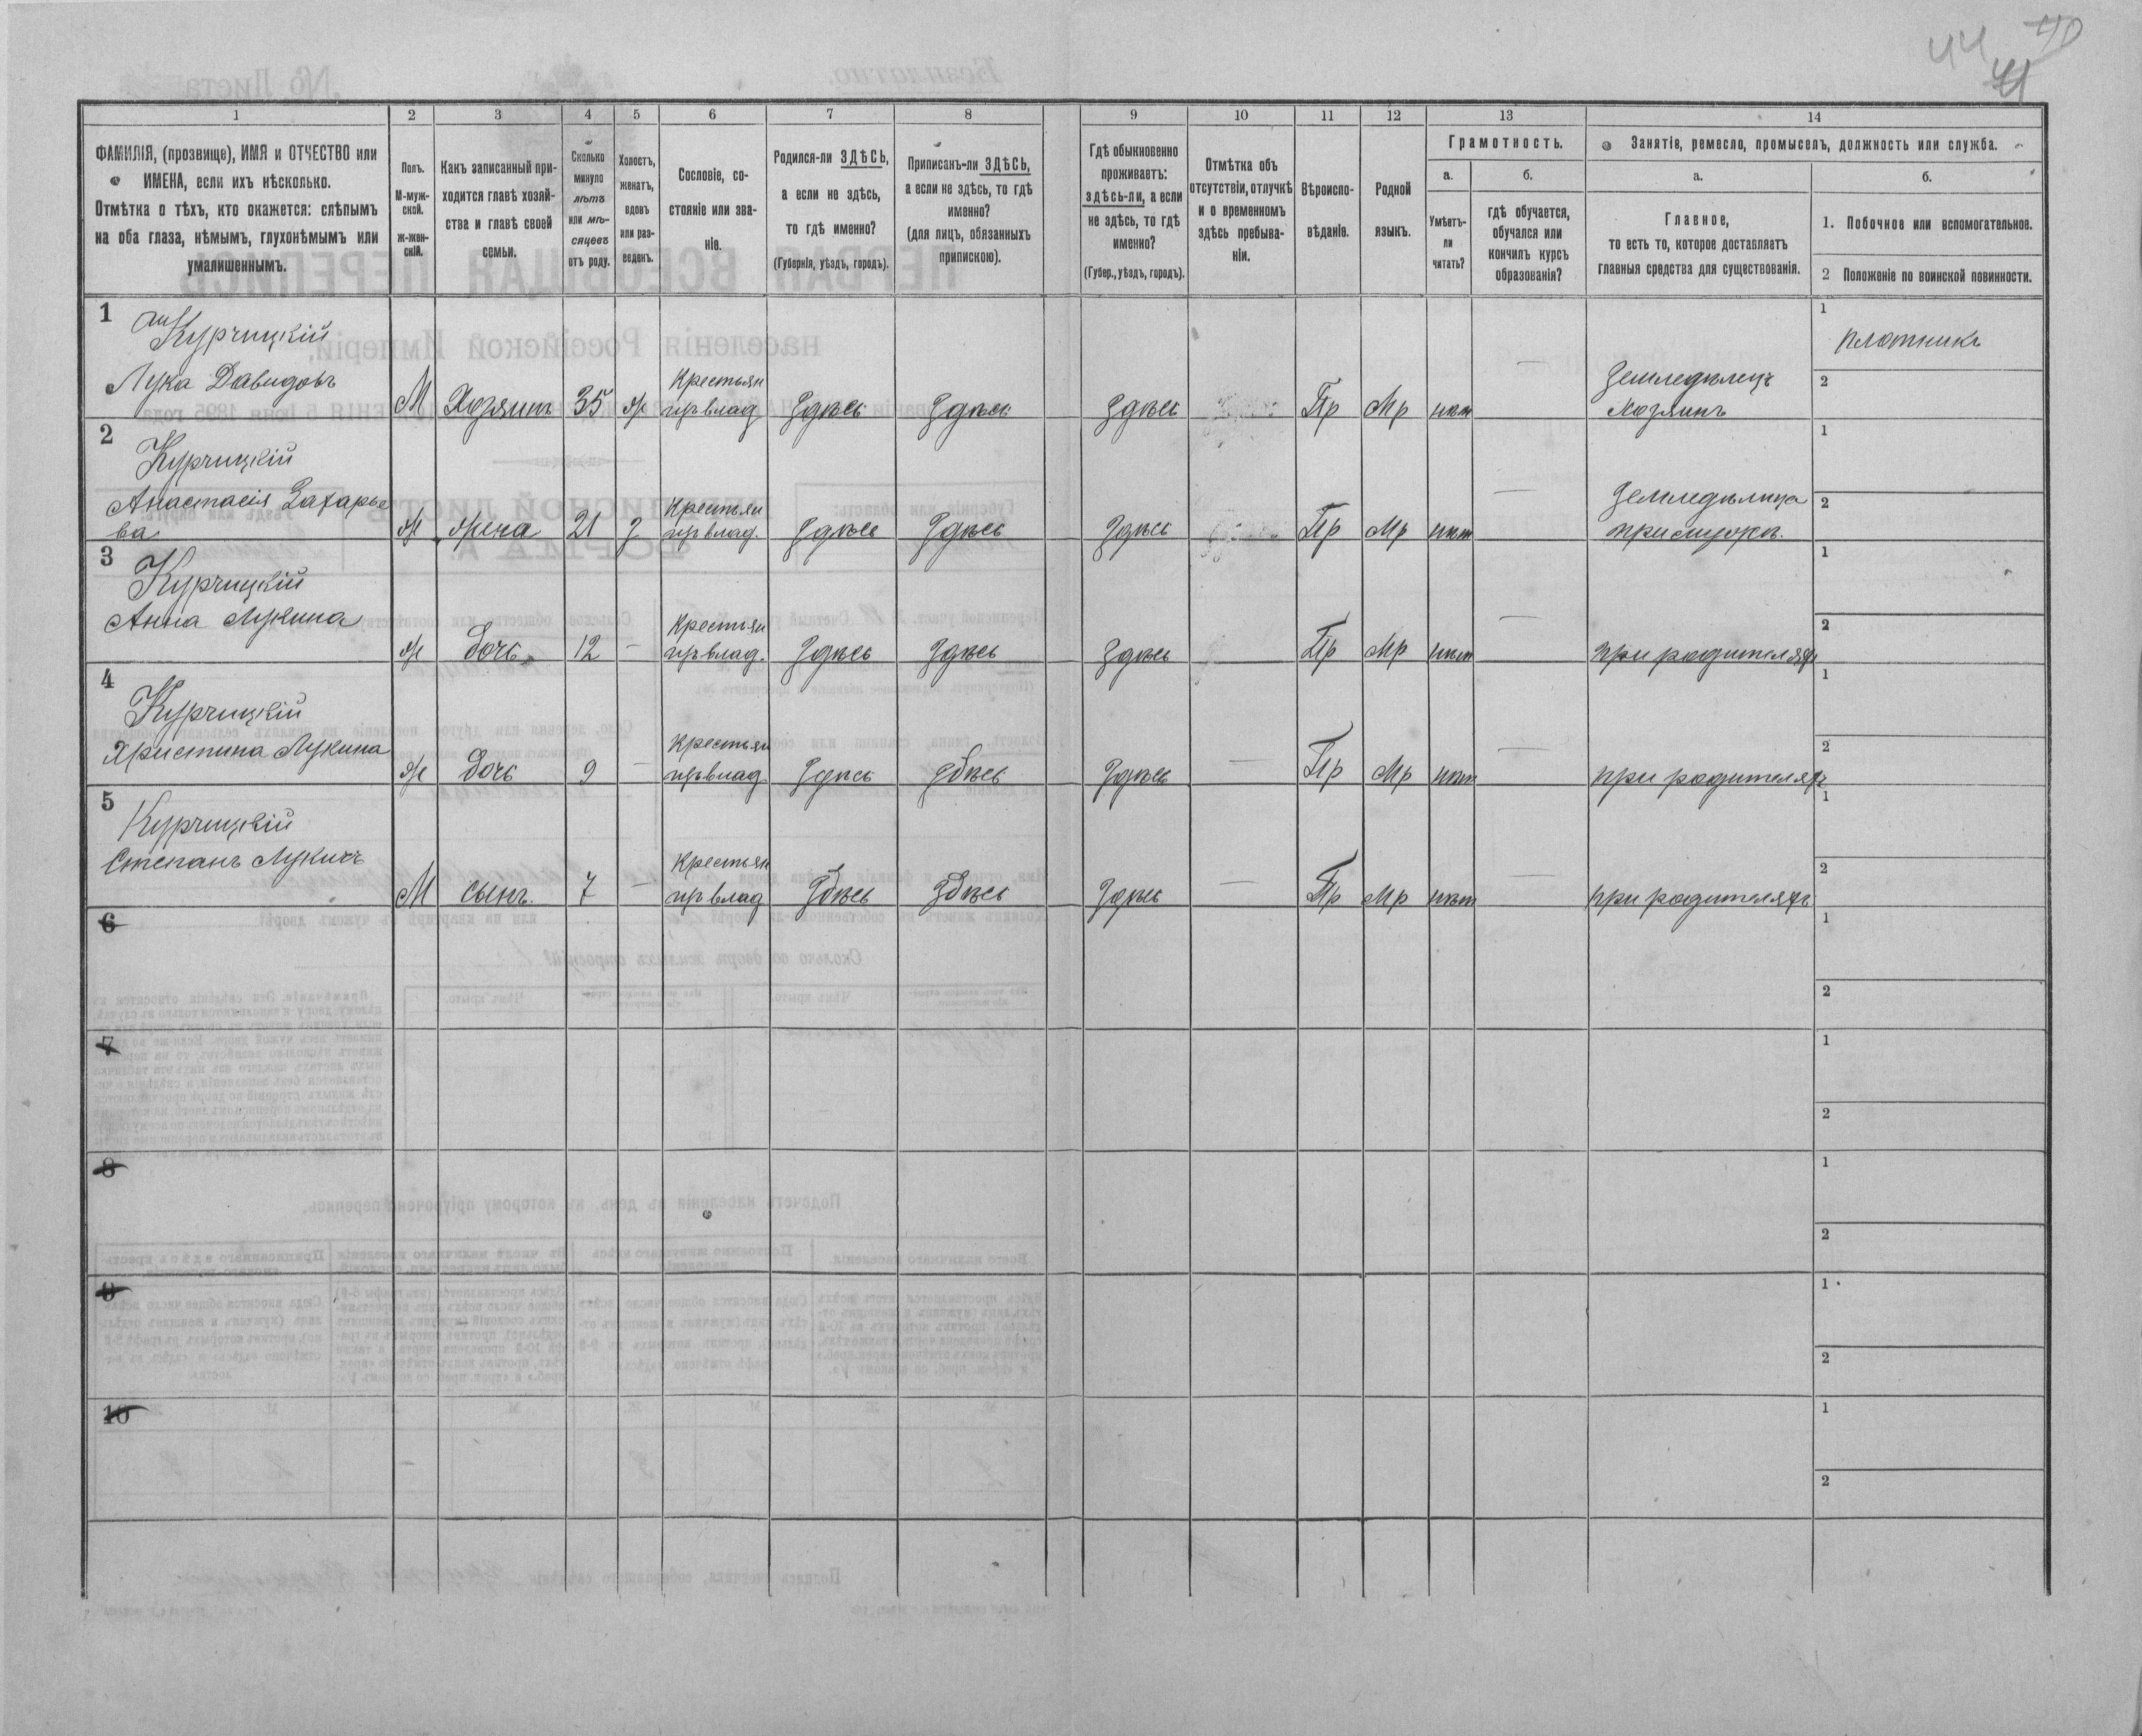 44 40
41
1 2 3 4 5 6 7 8 9 10 11 12 13 14
ФАМИЛІЯ, (прозвище), ИМЯ и ОТЧЕСТВО или
ИМЕНА, если ихъ нѣсколько.
Отмѣтка о тѣхъ, кто окажется: слѣпымъ
на оба глаза, нѣмымъ, глухонѣмымъ или
умалишеннымъ.
Полъ.
М-муж-
ской.
Ж-жен-
скій.
Какъ записанный при-
ходится главѣ хозяй-
ства и главѣ своей
семьи.
Сколько
минуло
лѣтъ
или мѣ-
сяцевъ
отъ роду.
Холостъ,
женатъ,
вдовъ
или раз-
веденъ.
Сословіе, со-
стояніе или зва-
ніе.
Родился-ли ЗДѢСЬ,
а если не здѣсь,
то гдѣ именно?
(Губернія, уѣздъ, городъ).
Приписанъ-ли ЗДѢСЬ,
а если не здѣсь, то гдѣ
именно?
(для лицъ, обязанныхъ
припискою).
Гдѣ обыкновенно
проживаетъ:
здѣсь-ли, а если
не здѣсь, то гдѣ
именно?
(Губер., уѣздъ, городъ).
Отмѣтка объ
отсутствіи, отлучкѣ
и о временномъ
здѣсь пребыва-
ніи.
Вѣроиспо-
вѣданіе.
Родной
языкъ.
Грамотность.
а.
Умѣетъ-
ли
читать?
б.
гдѣ обучается,
обучался или
кончилъ курсъ
образованія?
Занятіе, ремесло, промыселъ, должность или служба.
а.
Главное,
то есть то, которое доставляетъ
главныя средства для существованія.
б.
1. Побочное или вспомогательное.
2 Положеніе по воинской повинности.
1
Курчицкій
Лука Давидовъ
М Хозяинъ 35 ж
Крестьян
изъ влад
Здѣсь Здѣсь Здѣсь Пр Мр нѣт —
Земледѣлец
Хозяинъ
1
плотникъ
2
2
Курчицкій
Анастасія Захарье
ва
ж жена 21 з
Крестьян
изъ влад.
Здѣсь Здѣсь Здѣсь Пр Мр нѣт —
Земледѣлица
при мужѣ.
1
2
3
Курчицкій
Анна Лукина
ж дочь 12 —
Крестьян
изъ влад.
Здѣсь Здѣсь Здѣсь Пр Мр нѣт —
при родителяхъ
1
2
4
Курчицкій
Христина Лукина
ж дочь 9 —
Крестьян
изъ влад
Здѣсь Здѣсь Здѣсь — Пр Мр нѣт —
при родителяхъ
1
2
5
Курчицкій
Степанъ Лукичъ
М сынъ. 7 —
Крестьян
изъ влад
Здѣсь Здѣсь Здѣсь — Пр Мр нѣт —
при родителяхъ
1
2
6
1
2
7
1
2
8
1
2
9
1
2
10
1
2